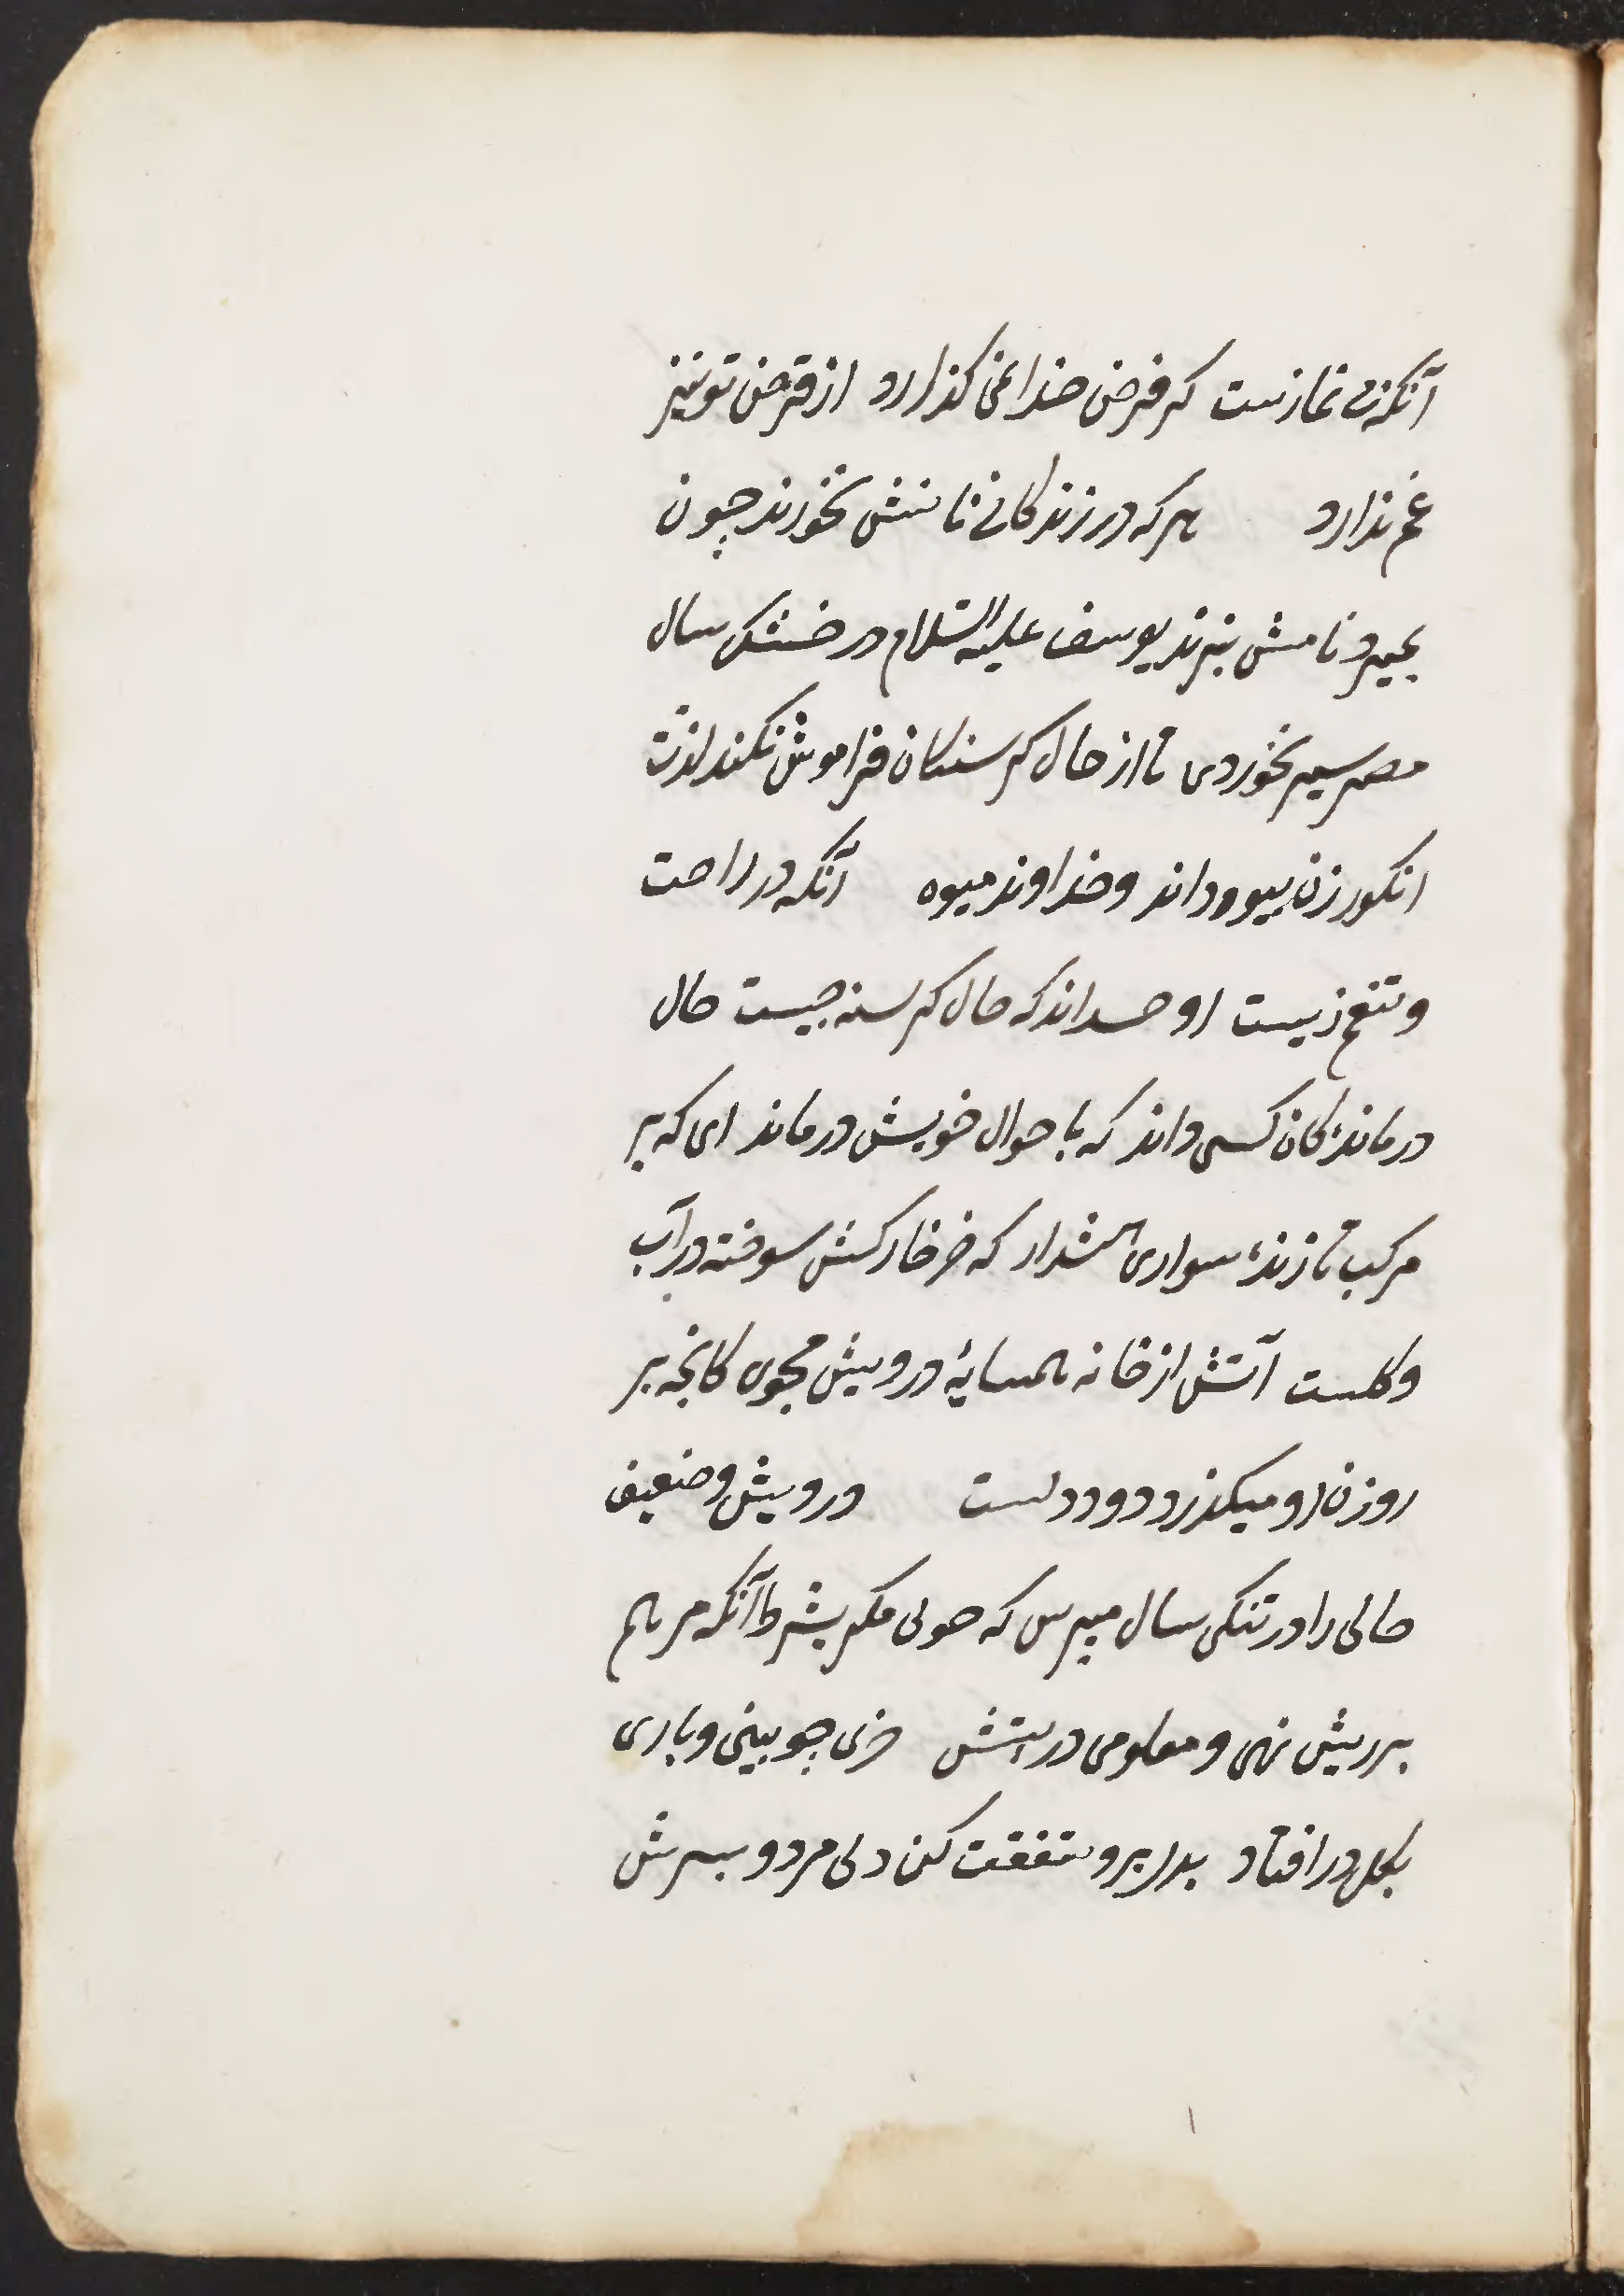 آنکه بی نمازست که فرض خدا نمی کذارد از قرض تو نیز
غم ندارد هرکه در زندکانی نانش نخورند چون
بمیرد نامش نبرند یوسف علیه السّلام در خشک سال
مصر سیر نخوردی تا از حال کرسنکان فراموش نکند لذّت
انکور زن بیوه داند و خداوند میوه آنکه در راحت
و تنعم زیست او چه داند که حال کرسنه چیست حال
درماندکان کسی داند که باحوال خویش درماند ای که بر
مرکب تازندۀ سواری هشدار که خر خارکش سوخته در آب
و کلست آتش از خانه همسایۀ درویش مجوی کانچه بر
روزن او میکذرد دود دلست درویش و ضعیف
حالی را در تنکی سال مپرس که چونی مکر بشرط آنکه مرهم
بر ریش نهی و معلومی در پیشش خری چو بینی و باری
بکل در افتاد بدل برو شفقت کن ولی مرو بسرش